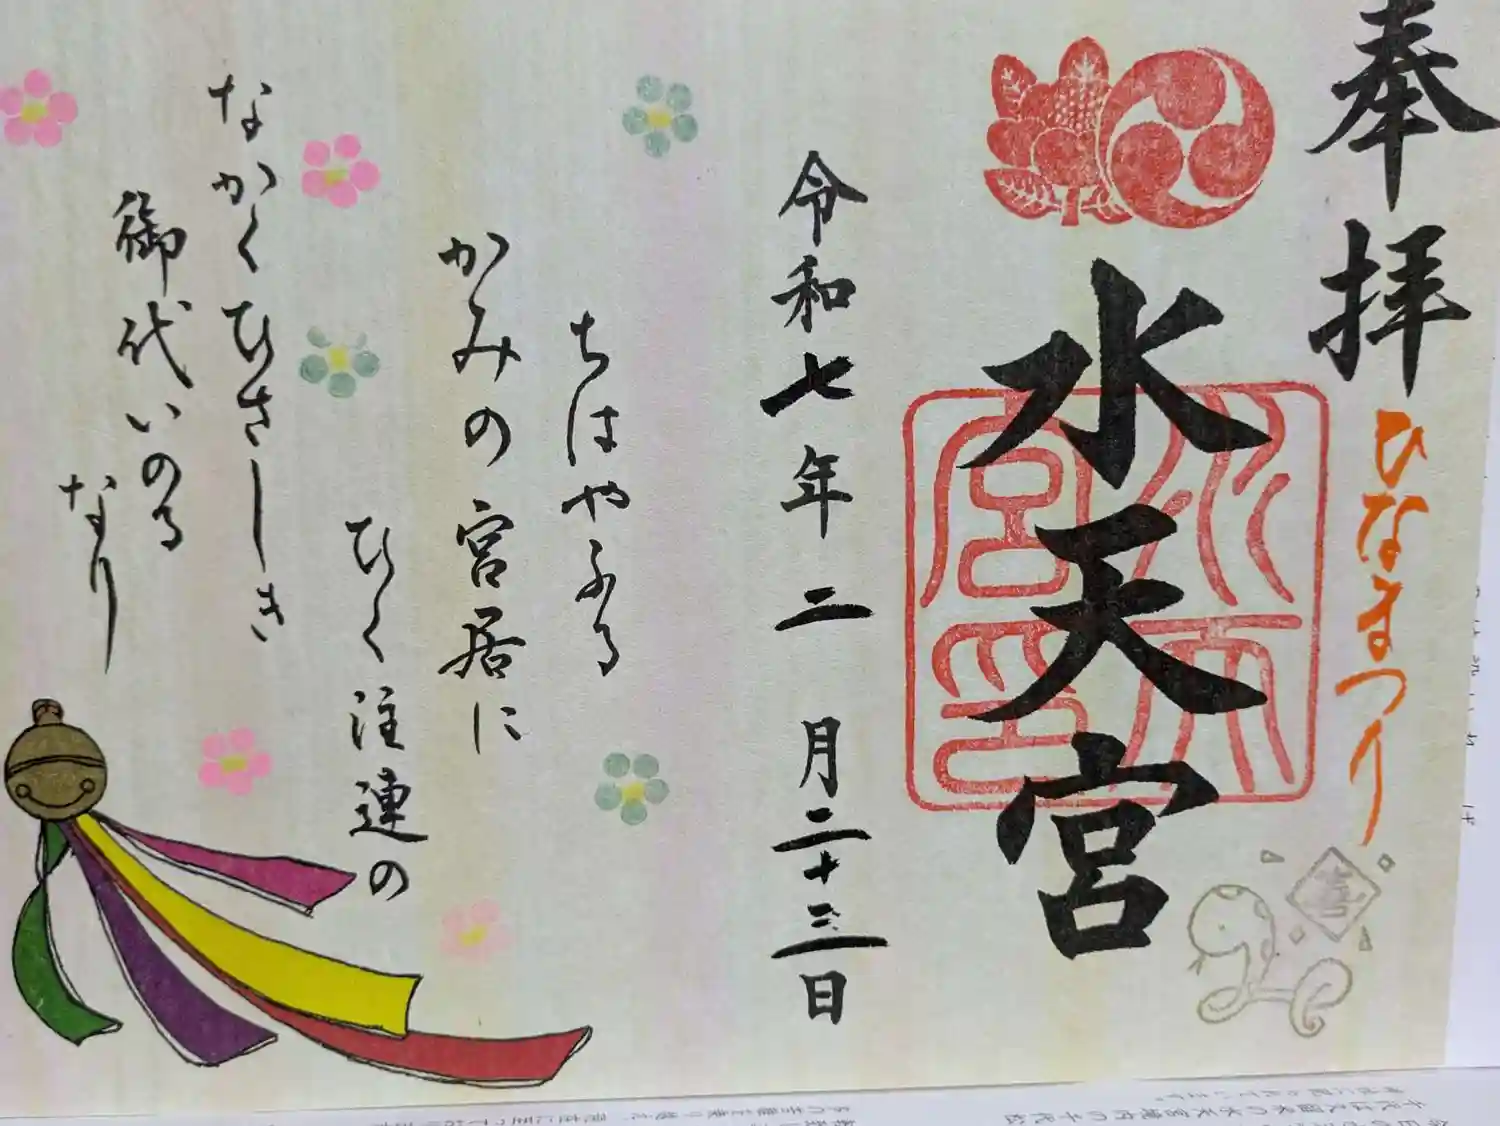 奉拝
ひなまつり
水天宮
令和七年二月二十三日
ちはやふる
かみの宮居に
ひく注連の
なかくひさしき
御代いのる
なり